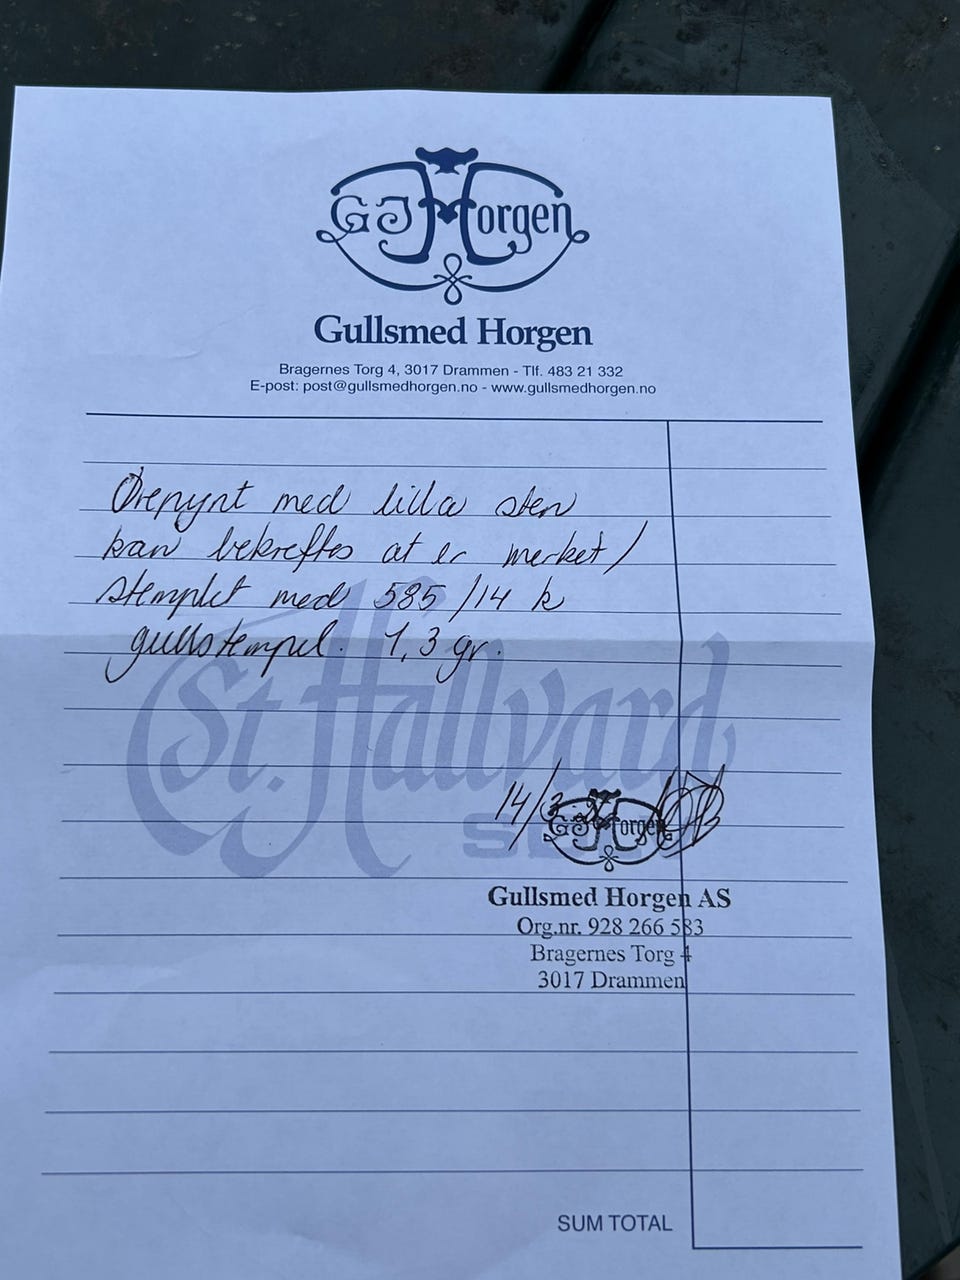 GJ Horgen
Gullsmed Horgen
Bragernes Torg 4, 3017 Drammen - Tlf. 483 21 332
E-post: post@gullsmedhorgen.no - www.gullsmedhorgen.no
Ørepynt med lilla sten
kan bekreftes at er merket/
stemplet med 585/14 k
gullstempel. 1,3 gr.
St. Hallvard
14/3
GJ Horgen
Gullsmed Horgen AS
Org.nr. 928 266 583
Bragernes Torg 4
3017 Drammen
SUM TOTAL